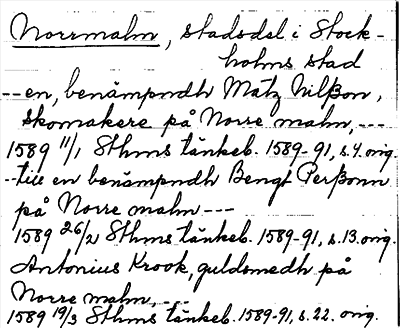 Norrmalm, stadsdel i Stock-
holms stad
--en, benämpndh Mätz Nilßon,
skomakere på Norre malm, ---
1589 11/1 Sthms tänkeb. 1589-91, s.4. orig.
--till en benämpndh Bengt Perßonn
på Norre malm ---
1589 26/2 Sthms tänkeb. 1589-91, s.13. orig.
Antonius Krook, guldsmedh på
Norre malm, ---
1589 19/3 Sthms tänkeb. 1589-91, s.22. orig.